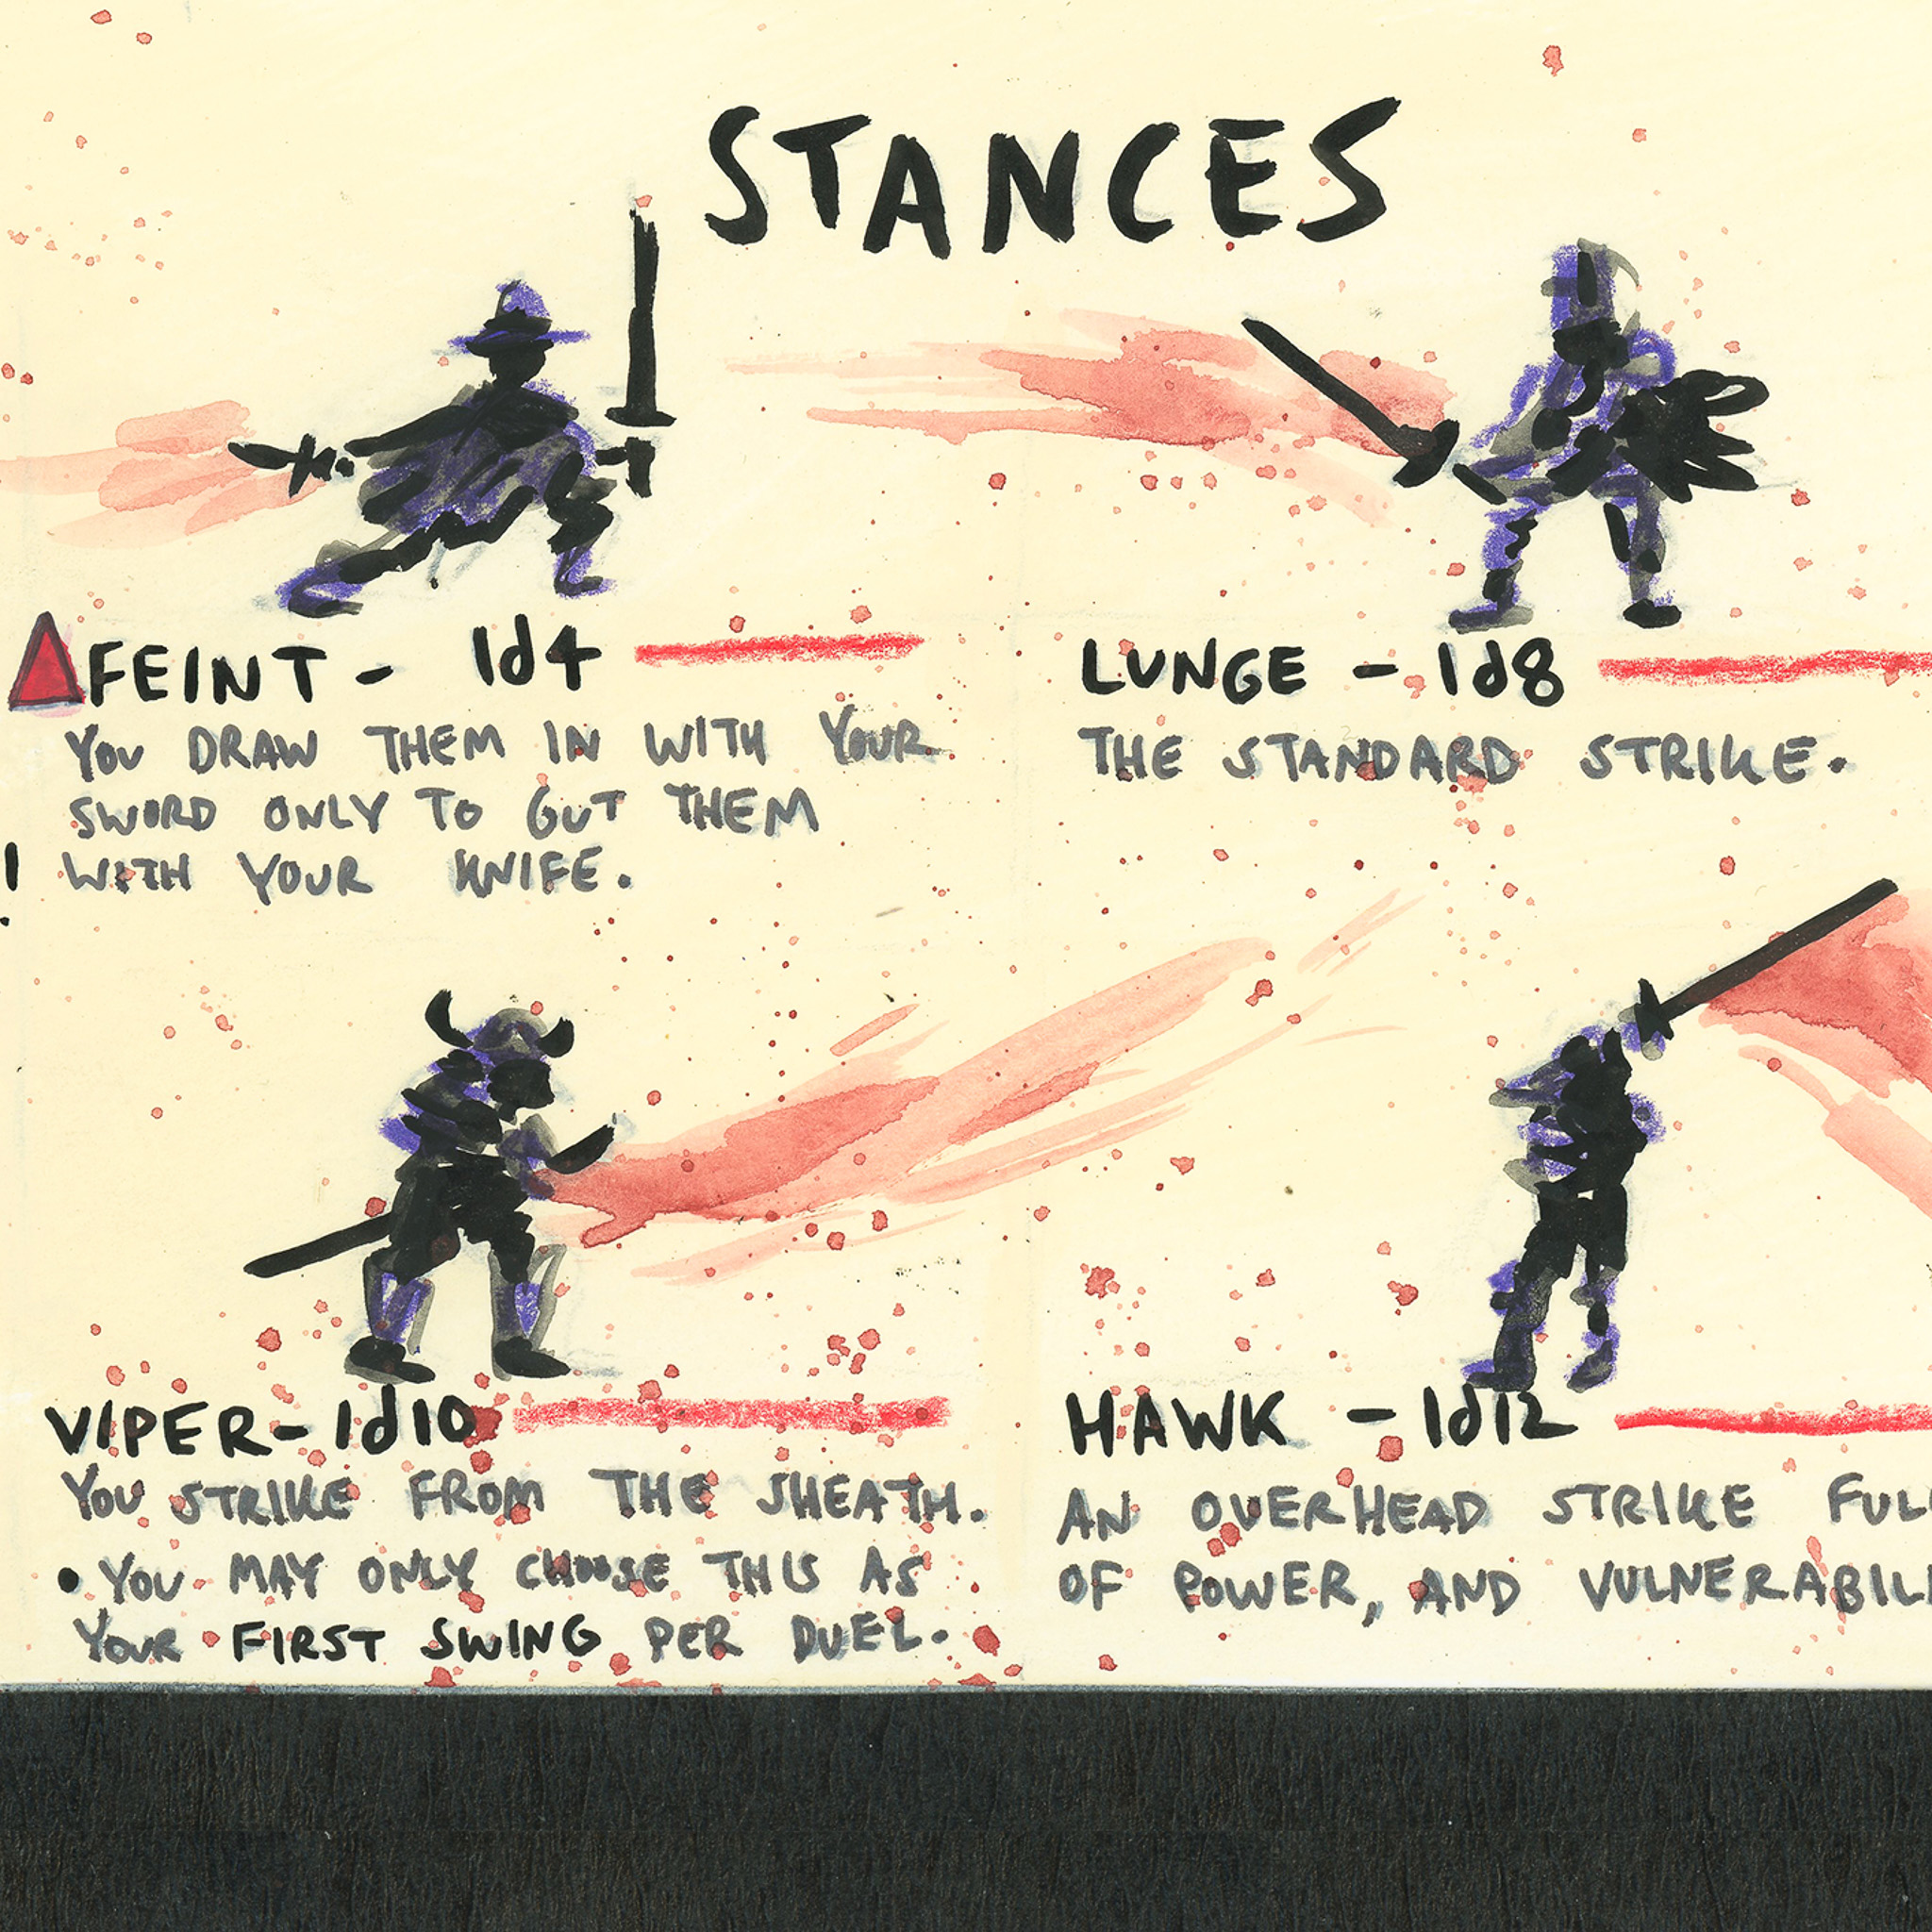 STANCES
FEINT - 1d4
YOU DRAW THEM IN WITH YOUR
SWORD ONLY TO GUT THEM
WITH YOUR KNIFE.
LUNGE - 1d8
THE STANDARD STRIKE.
VIPER - 1d10
YOU STRIKE FROM THE SHEATH.
• YOU MAY ONLY CHOOSE THIS AS
YOUR FIRST SWING PER DUEL.
HAWK - 1d12
AN OVERHEAD STRIKE FUL
OF POWER, AND VULNERABILI